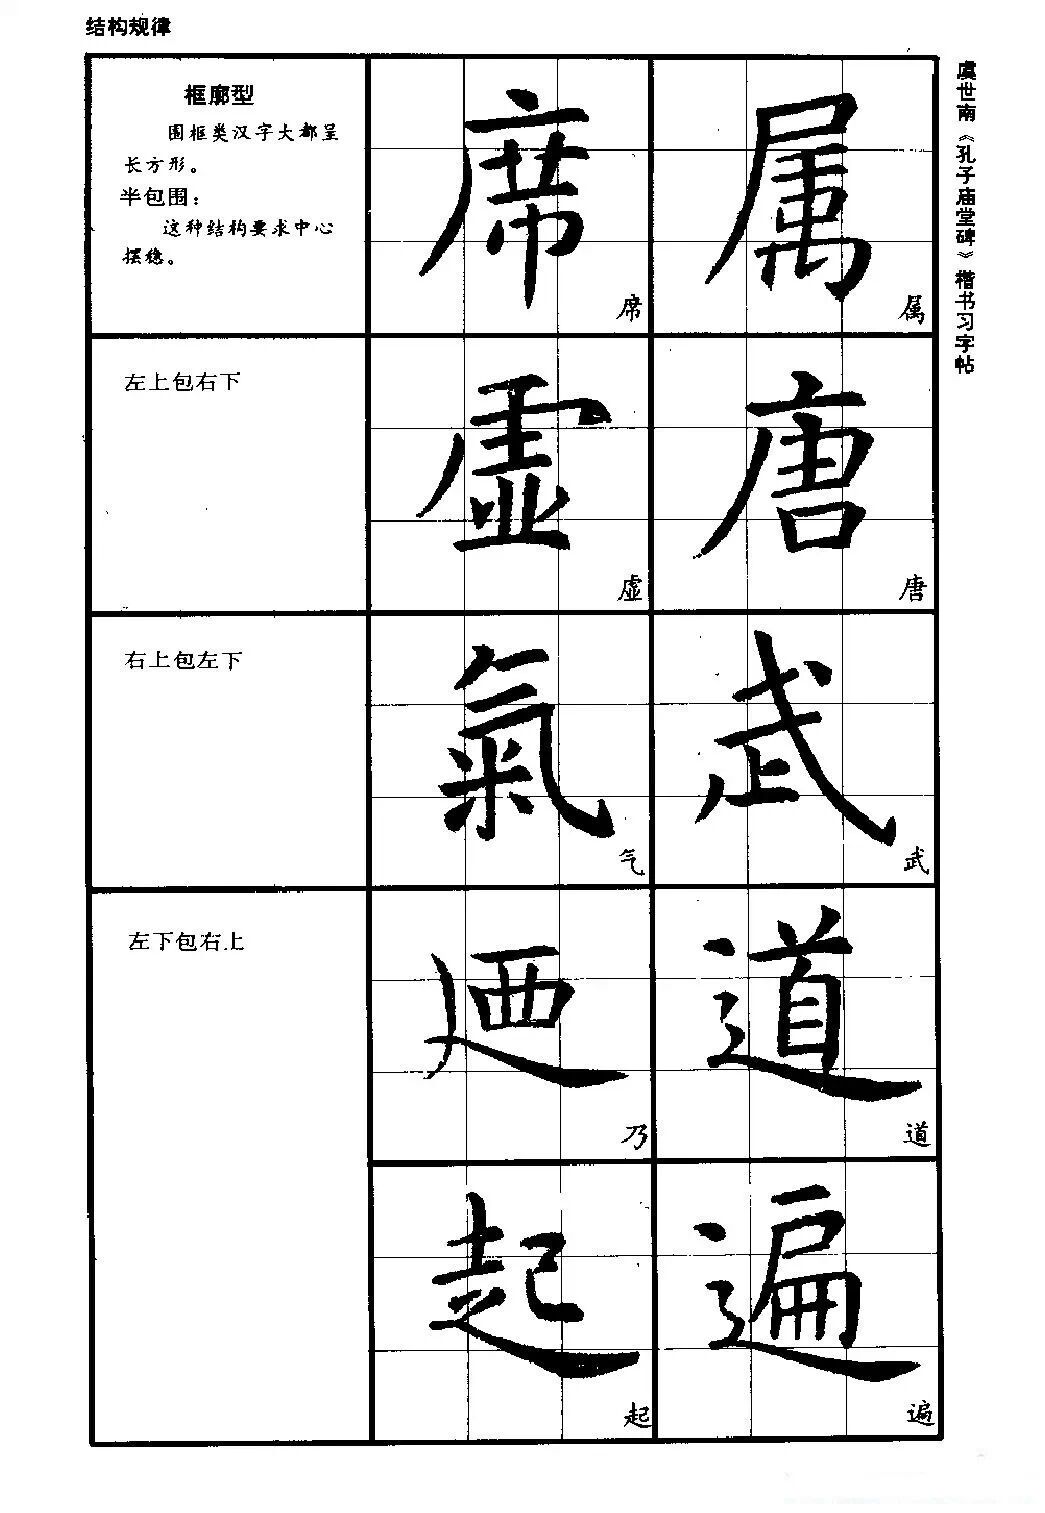 结构规律
框廓型
围框类汉字大都呈
长方形。
半包围：
这种结构要求中心
摆稳。
席 属
席 属
左上包右下
虚 唐
虚 唐
右上包左下
氣 武
气 武
左下包右上
廼 道
乃 道
起 遍
起 遍
虞世南《孔子庙堂碑》楷书习字帖